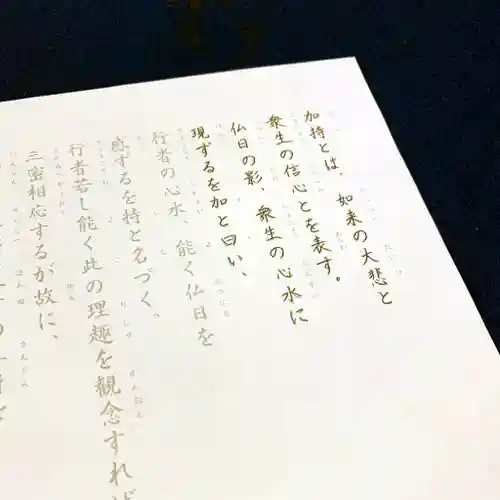 加持とは、如来の大悲と
衆生の信心とを表す。
仏日の影、衆生の心水に
現ずるを加と曰い、
行者の心水、能く仏日を
感ずるを持と名づく。
行者若し能く此の理趣を観念すれば
三密相応するが故に、